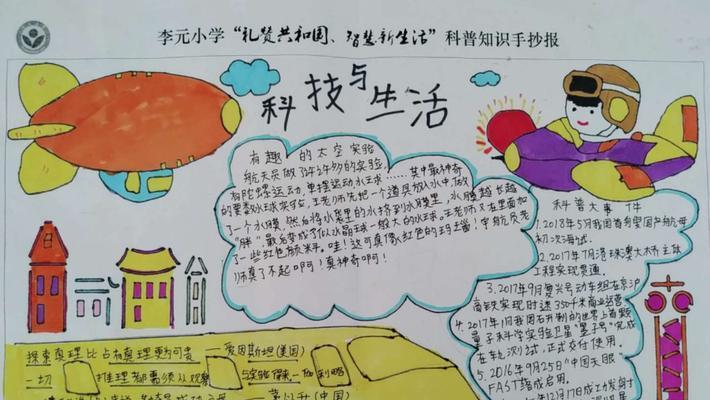 李元小学“礼赞共和国、智慧新生活”科普知识手抄报
科技与生活
有趣的太空实验
航天员做了许多的实验,
有陀螺运动,单摆运动,水球……其中最神奇
的要数水球实验,王老师先把一个道具放入水中,做
了一个水膜,然后将水袋里的水挤到水膜里,水膜越长越
“胖”,最后变成了似水晶球一般大的水球。王老师又在里面加
了一些红色颜料。哇!这可真像红色的玛瑙!宇航员老
师真了不起啊啊!真神奇啊!
科普大事件
1.2018年5月我国首艘国产航母
初次海试。
2.2017年7月港珠澳大桥主体
工程实现贯通。
3.2017年9月复兴号动车组在京沪
高铁实现时速350千米商业运营。
4.2017年1月我国研制的世界上首颗
量子科学实验卫星“墨子号”完成
在轨测试,正式交付使用。
5.2016年9月25日“中国天眼”
FAST落成启用。
年12月17日成功发射
探索真理比占有真理更可贵——爱因斯坦(美国)
一切推理都需须从观察与实验得来—伽利略
(中国)